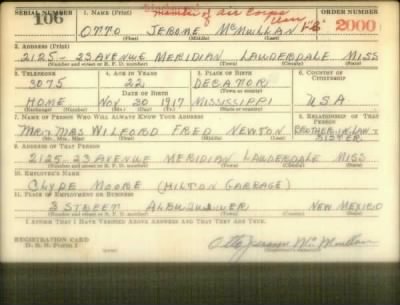 SERIAL NUMBER 1. NAME (Print) ORDER NUMBER
member of air Corps
106 OTTO JEROME McMULLAN 2000
(First) (Middle) (Last)
2. ADDRESS (Print)
2125 - 23 AVENUE MERIDIAN LAUDERDALE MISS
(Number and street or R. F. D. number) (Town) (County) (State)
3. TELEPHONE 4. AGE IN YEARS 5. PLACE OF BIRTH 6. COUNTRY OF CITIZENSHIP
3075 22 DECATOR
(Town or county)
HOME NOV 20 1917 MISSISSIPPI U.S.A
(Exchange) (Number) (Mo.) (Day) (Yr.) (State or country)
7. NAME OF PERSON WHO WILL ALWAYS KNOW YOUR ADDRESS 8. RELATIONSHIP OF THAT PERSON
MR & MRS WILFORD FRED NEWTON BROTHER-IN-LAW-SISTER
(Mr., Mrs., Miss) (First) (Middle) (Last)
9. ADDRESS OF THAT PERSON
2125 23 AVENUE MERIDIAN LAUDERDALE MISS
(Number and street or R. F. D. number) (Town) (County) (State)
10. EMPLOYER'S NAME
CLYDE MOORE (HILTON GARRAGE)
11. PLACE OF EMPLOYMENT OR BUSINESS
3 STREET NEW MEXICO
(Number and street or R. F. D. number) (Town) (County) (State)
I AFFIRM THAT I HAVE VERIFIED ABOVE ANSWERS AND THAT THEY ARE TRUE.
REGISTRATION CARD
D. S. S. Form 1
Otto Jerome McMullan